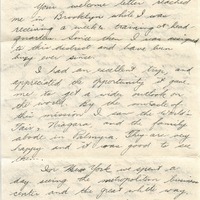 Your welcome letter reached
me in Brooklyn while I was
receiving a weeks training at head-
quarters. Since then I was assigned
to this district and have been
busy ever since.
I had an excellent trip, and
appreciated the opportunity it gave
me to get a wider outlook on
the world. By the contacts of
this mission I saw the World's
Fair, Niagara and the family
and folks in Palmyra. They are very
happy and it was good to see
them.
In New York we spent a
day seeing the metropolitan business
center and the great white way